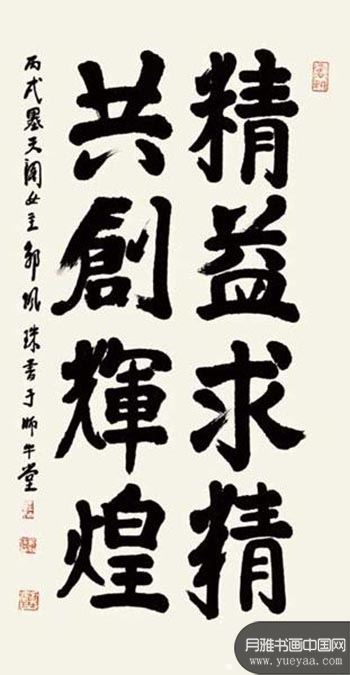 精益求精
共創輝煌
丙戌墨天閣女主郭鳳珠書于師牛堂
月雅书画中国网
www.yueyaa.com